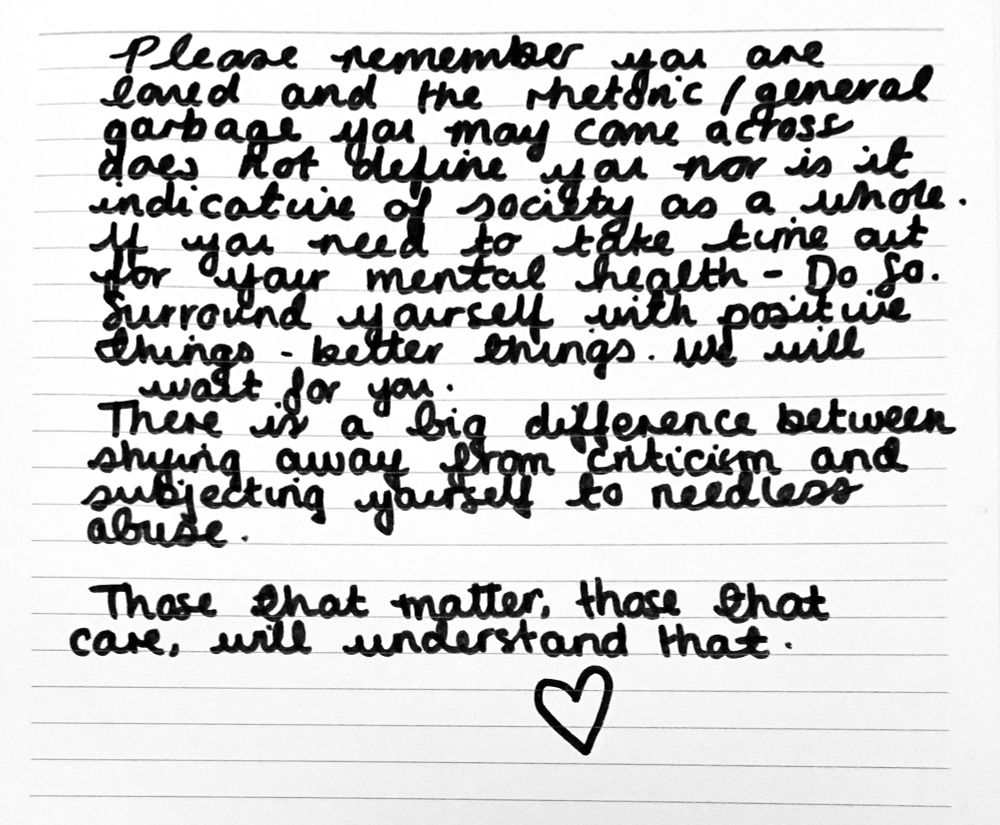 Please remember you are
loved and the rhetoric / general
garbage you may come across
does not define you nor is it
indicative of society as a whole.
If you need to take time out
for your mental health - Do So.
Surround yourself with positive
things - better things. We will
wait for you.
There is a big difference between
shying away from criticism and
subjecting yourself to needless
abuse.
Those that matter, those that
care, will understand that.